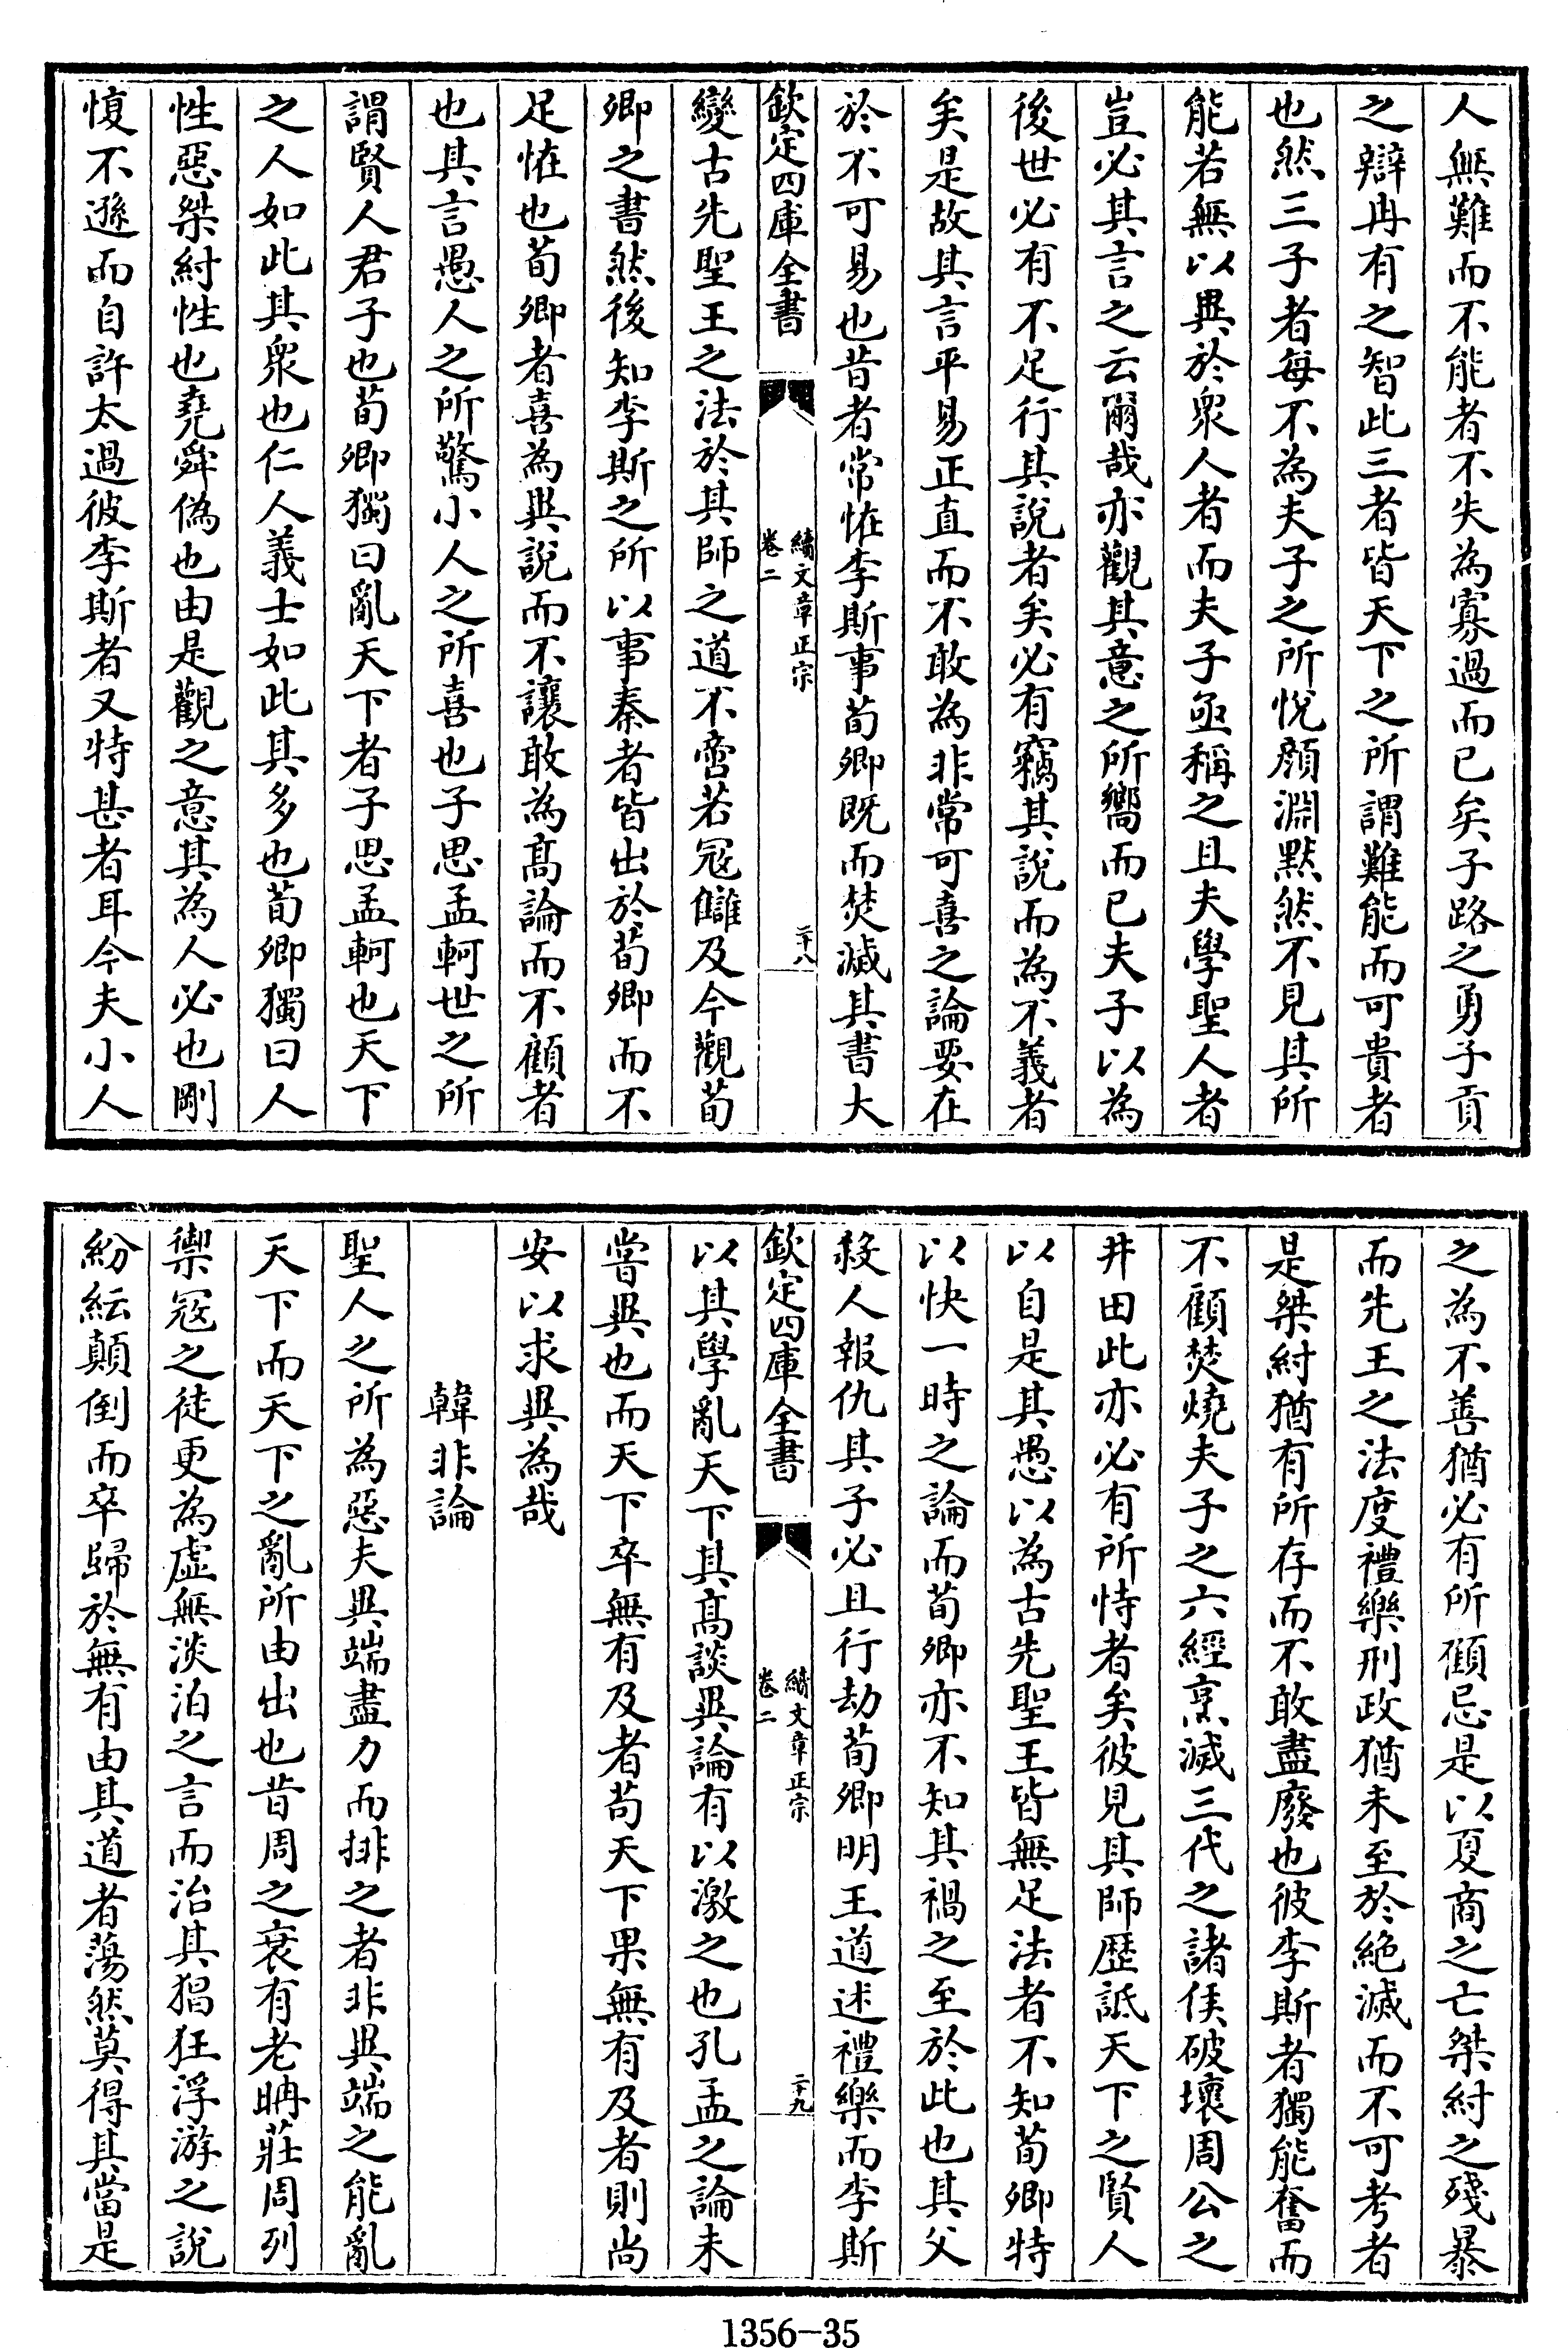 人無難而不能者不失為寡過而已矣子路之勇子貢
之辯冉有之智此三者皆天下之所謂難能而可貴者
也然三子者每不為夫子之所悅顔淵黙然不見其所
能若無以異於衆人者而夫子亟稱之且夫學聖人者
豈必其言之云爾哉亦觀其意之所嚮而已夫子以為
後世必有不足行其説者矣必有竊其説而為不義者
矣是故其言平易正直而不敢為非常可喜之論要在
於不可易也昔者常怪李斯事荀卿既而焚滅其書大
欽定四庫全書
續文章正宗
卷二
二十八
變古先聖王之法於其師之道不啻若冦讎及今觀荀
卿之書然後知李斯之所以事秦者皆出於荀卿而不
足怪也荀卿者喜為異説而不讓敢為髙論而不顧者
也其言愚人之所驚小人之所喜也子思孟軻世之所
謂賢人君子也荀卿獨曰亂天下者子思孟軻也天下
之人如此其衆也仁人義士如此其多也荀卿獨曰人
性惡桀紂性也堯舜偽也由是觀之意其為人必也剛
愎不遜而自許太過彼李斯者又特甚者耳今夫小人
之為不善猶必有所顧忌是以夏商之亡桀紂之殘暴
而先王之法度禮樂刑政猶未至於絶滅而不可考者
是桀紂猶有所存而不敢盡廢也彼李斯者獨能奮而
不顧焚燒夫子之六經烹滅三代之諸侯破壞周公之
井田此亦必有所恃者矣彼見其師歴詆天下之賢人
以自是其愚以為古先聖王皆無足法者不知荀卿特
以快一時之論而荀卿亦不知其禍之至於此也其父
殺人報仇其子必且行劫荀卿明王道述禮樂而李斯
欽定四庫全書
續文章正宗
卷二
二十九
以其學亂天下其髙談異論有以激之也孔孟之論未
嘗異也而天下卒無有及者苟天下果無有及者則尚
安以求異為哉
韓非論
聖人之所為惡夫異端盡力而排之者非異端之能亂
天下而天下之亂所由出也昔周之衰有老聃莊周列
禦冦之徒更為虛無淡泊之言而治其猖狂浮游之説
紛紜顛倒而卒歸於無有由其道者蕩然莫得其當是
1356-35